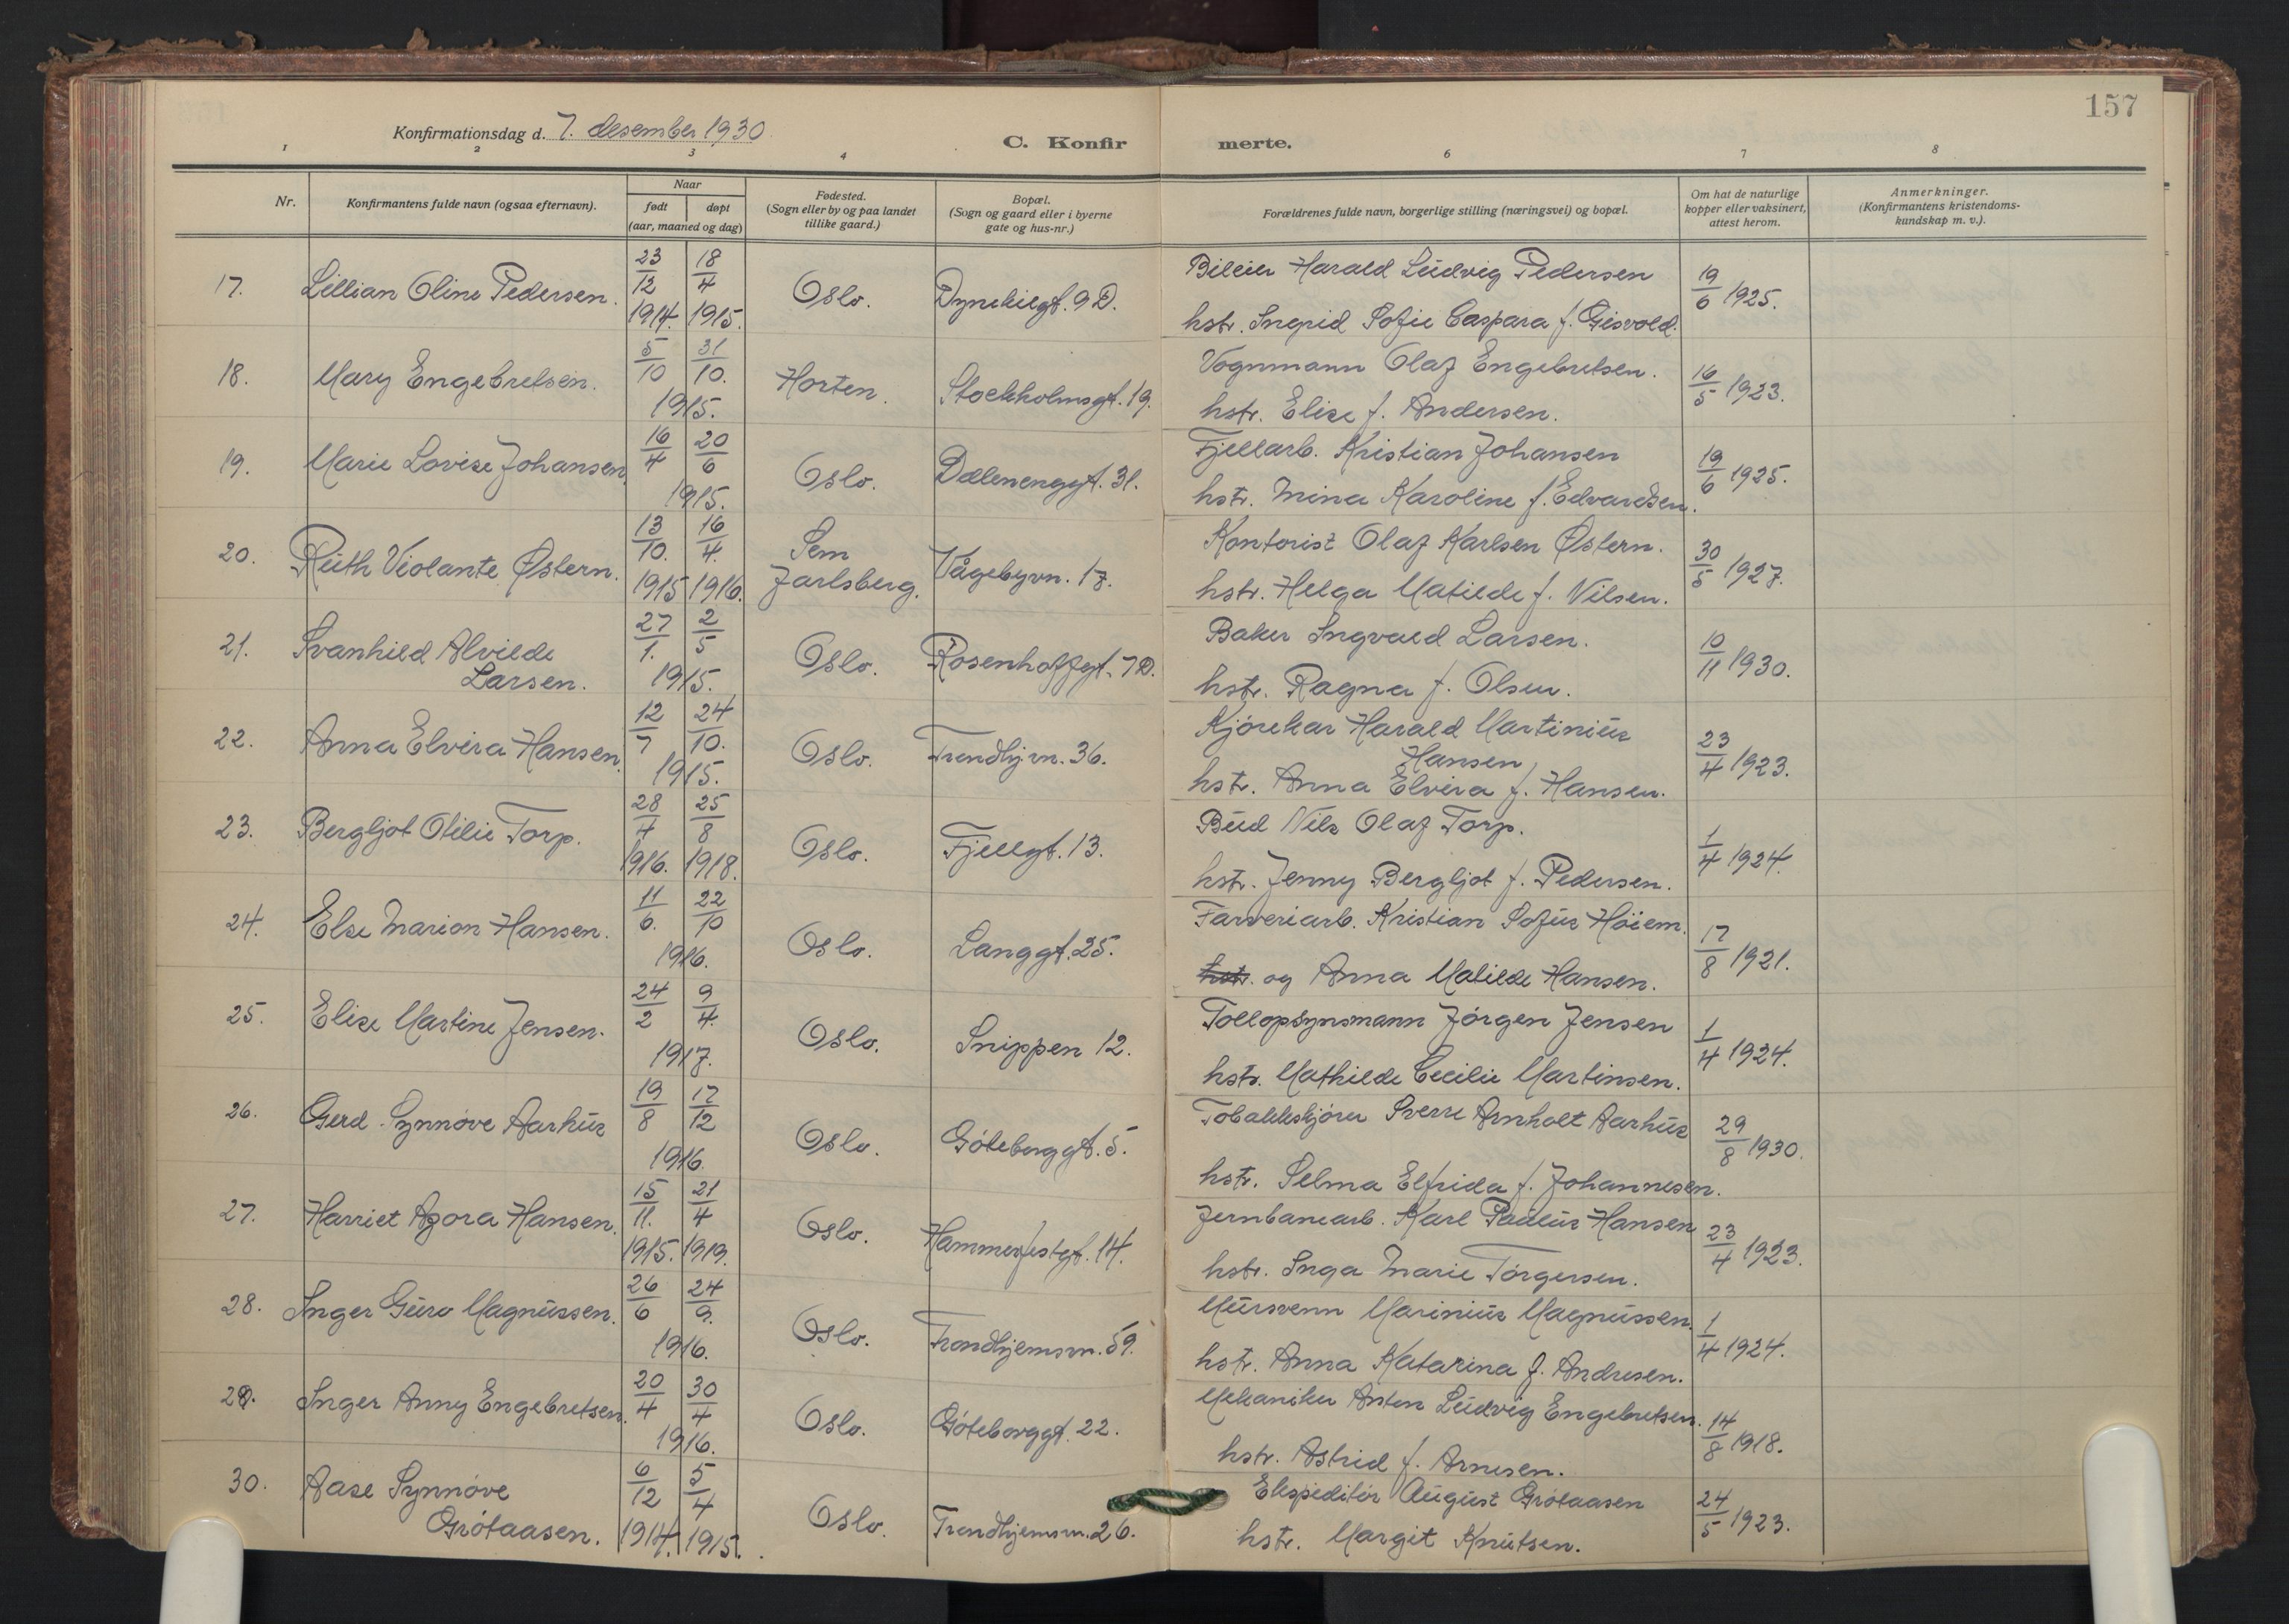 157
Konfirmationsdag d. 7. desember 1930
C. Konfir merte.
1 2 3 4 6 7 8
Nr.
Konfirmantens fulde navn (ogsaa efternavn).
Naar
født døpt
(aar, maaned og dag)
Fødested.
(Sogn eller by og paa landet
tillike gaard.)
Bopæl.
(Sogn og gaard eller i byerne
gate og hus-nr.)
Forældrenes fulde navn, borgerlige stilling (næringsvei) og bopæl.
Om hat de naturlige
kopper eller vaksinert,
attest herom.
Anmerkninger.
(Konfirmantens kristendoms-
kundskap m. v.).
17. Lillian Oline Pedersen. 23/12 1914. 18/4 1915. Oslo. Dynekilgt. 9 D. Bileier Harald Ludvig Pedersen 19/6 1925.
hstr. Ingrid Sofie Caspara f. Gisvold.
18. Mary Engebretsen. 5/10 31/10. 1915. Horten. Stockholmsgt. 19. Vognmann Olaf Engebretsen. 16/5 1923.
hstr. Elise f. Andersen.
19. Marie Lovise Johansen. 16/4 20/6 1915. Oslo. Dælenenggt. 31. Fjellarb. Kristian Johansen 19/6 1925.
hstr. Mina Karoline f. Edvardsen.
20. Ruth Violante Østern. 13/10. 1915 16/4. 1916. Sem Jarlsberg. Vågebyvn. 17. Kontorist Olaf Karlsen Østern. 30/5 1927.
hstr. Helga Matilde f. Nilsen.
21. Svanhild Alvilde 27/1. 2/5 1915. Oslo. Rosenhoffgt. 7 D. Baker Ingvald Larsen. 10/11 1930.
Larsen. hstr. Ragna f. Olsen.
22. Anna Elvira Hansen. 12/7 24/10. 1915. Oslo. Trondhj vn. 36. Kjørekar Harald Martinius 23/4 1923.
Hansen
hstr. Anna Elvira f. Hansen.
23. Bergljot Otilie Torp. 28/4 1916. 25/8 1918. Oslo. Fjellgt. 13. Bud Nils Olaf Torp. 1/4 1924.
hstr. Jenny Bergljot f. Pedersen.
24. Else Marion Hansen. 11/6. 22/10 1916. Oslo. Langgt. 25. Farveriarb. Kristian Sofus Höiem. 17/8 1921.
hstr. og Anna Matilde Hansen.
25. Elise Martine Jensen. 24/2 9/4. 1917. Oslo. Snippen 12. Tollopsynsmann Jörgen Jensen 1/4 1924.
hstr. Mathilde Cecilie Martinsen.
26. Gerd Synnøve Aarhus 19/8 17/12 1916. Oslo. Göteborggt. 5. Tobakkskjører Sverre Arnholt Aarhus 29/8 1930.
hstr. Selma Elfrida f. Johannesen.
27. Harriet Agora Hansen. 15/11. 1915. 21/4 1919. Oslo. Hammerfestgt. 14. Jernbanearb. Karl Paulus Hansen 23/4 1923.
hstr. Inga Marie Törgersen.
28. Inger Guro Magnussen. 26/6 24/9. 1916. Oslo. Trondhjemsvn. 59. Mursvenn Marinius Magnussen. 1/4 1924.
hstr. Anna Katarina f. Andresen.
29. Inger Anny Engebretsen. 20/4 30/4 1916. Oslo. Göteborggt. 22. Mekaniker Anton Ludvig Engebretsen. 14/8 1918.
hstr. Astrid f. Arnesen.
30. Aase Synnøve 6/12 1914. 5/4 1915. Oslo. Trondhjemsvn. 26. Ekspeditör August Grötaasen 24/5 1923.
Grötaasen. hstr. Margit Knutsen.